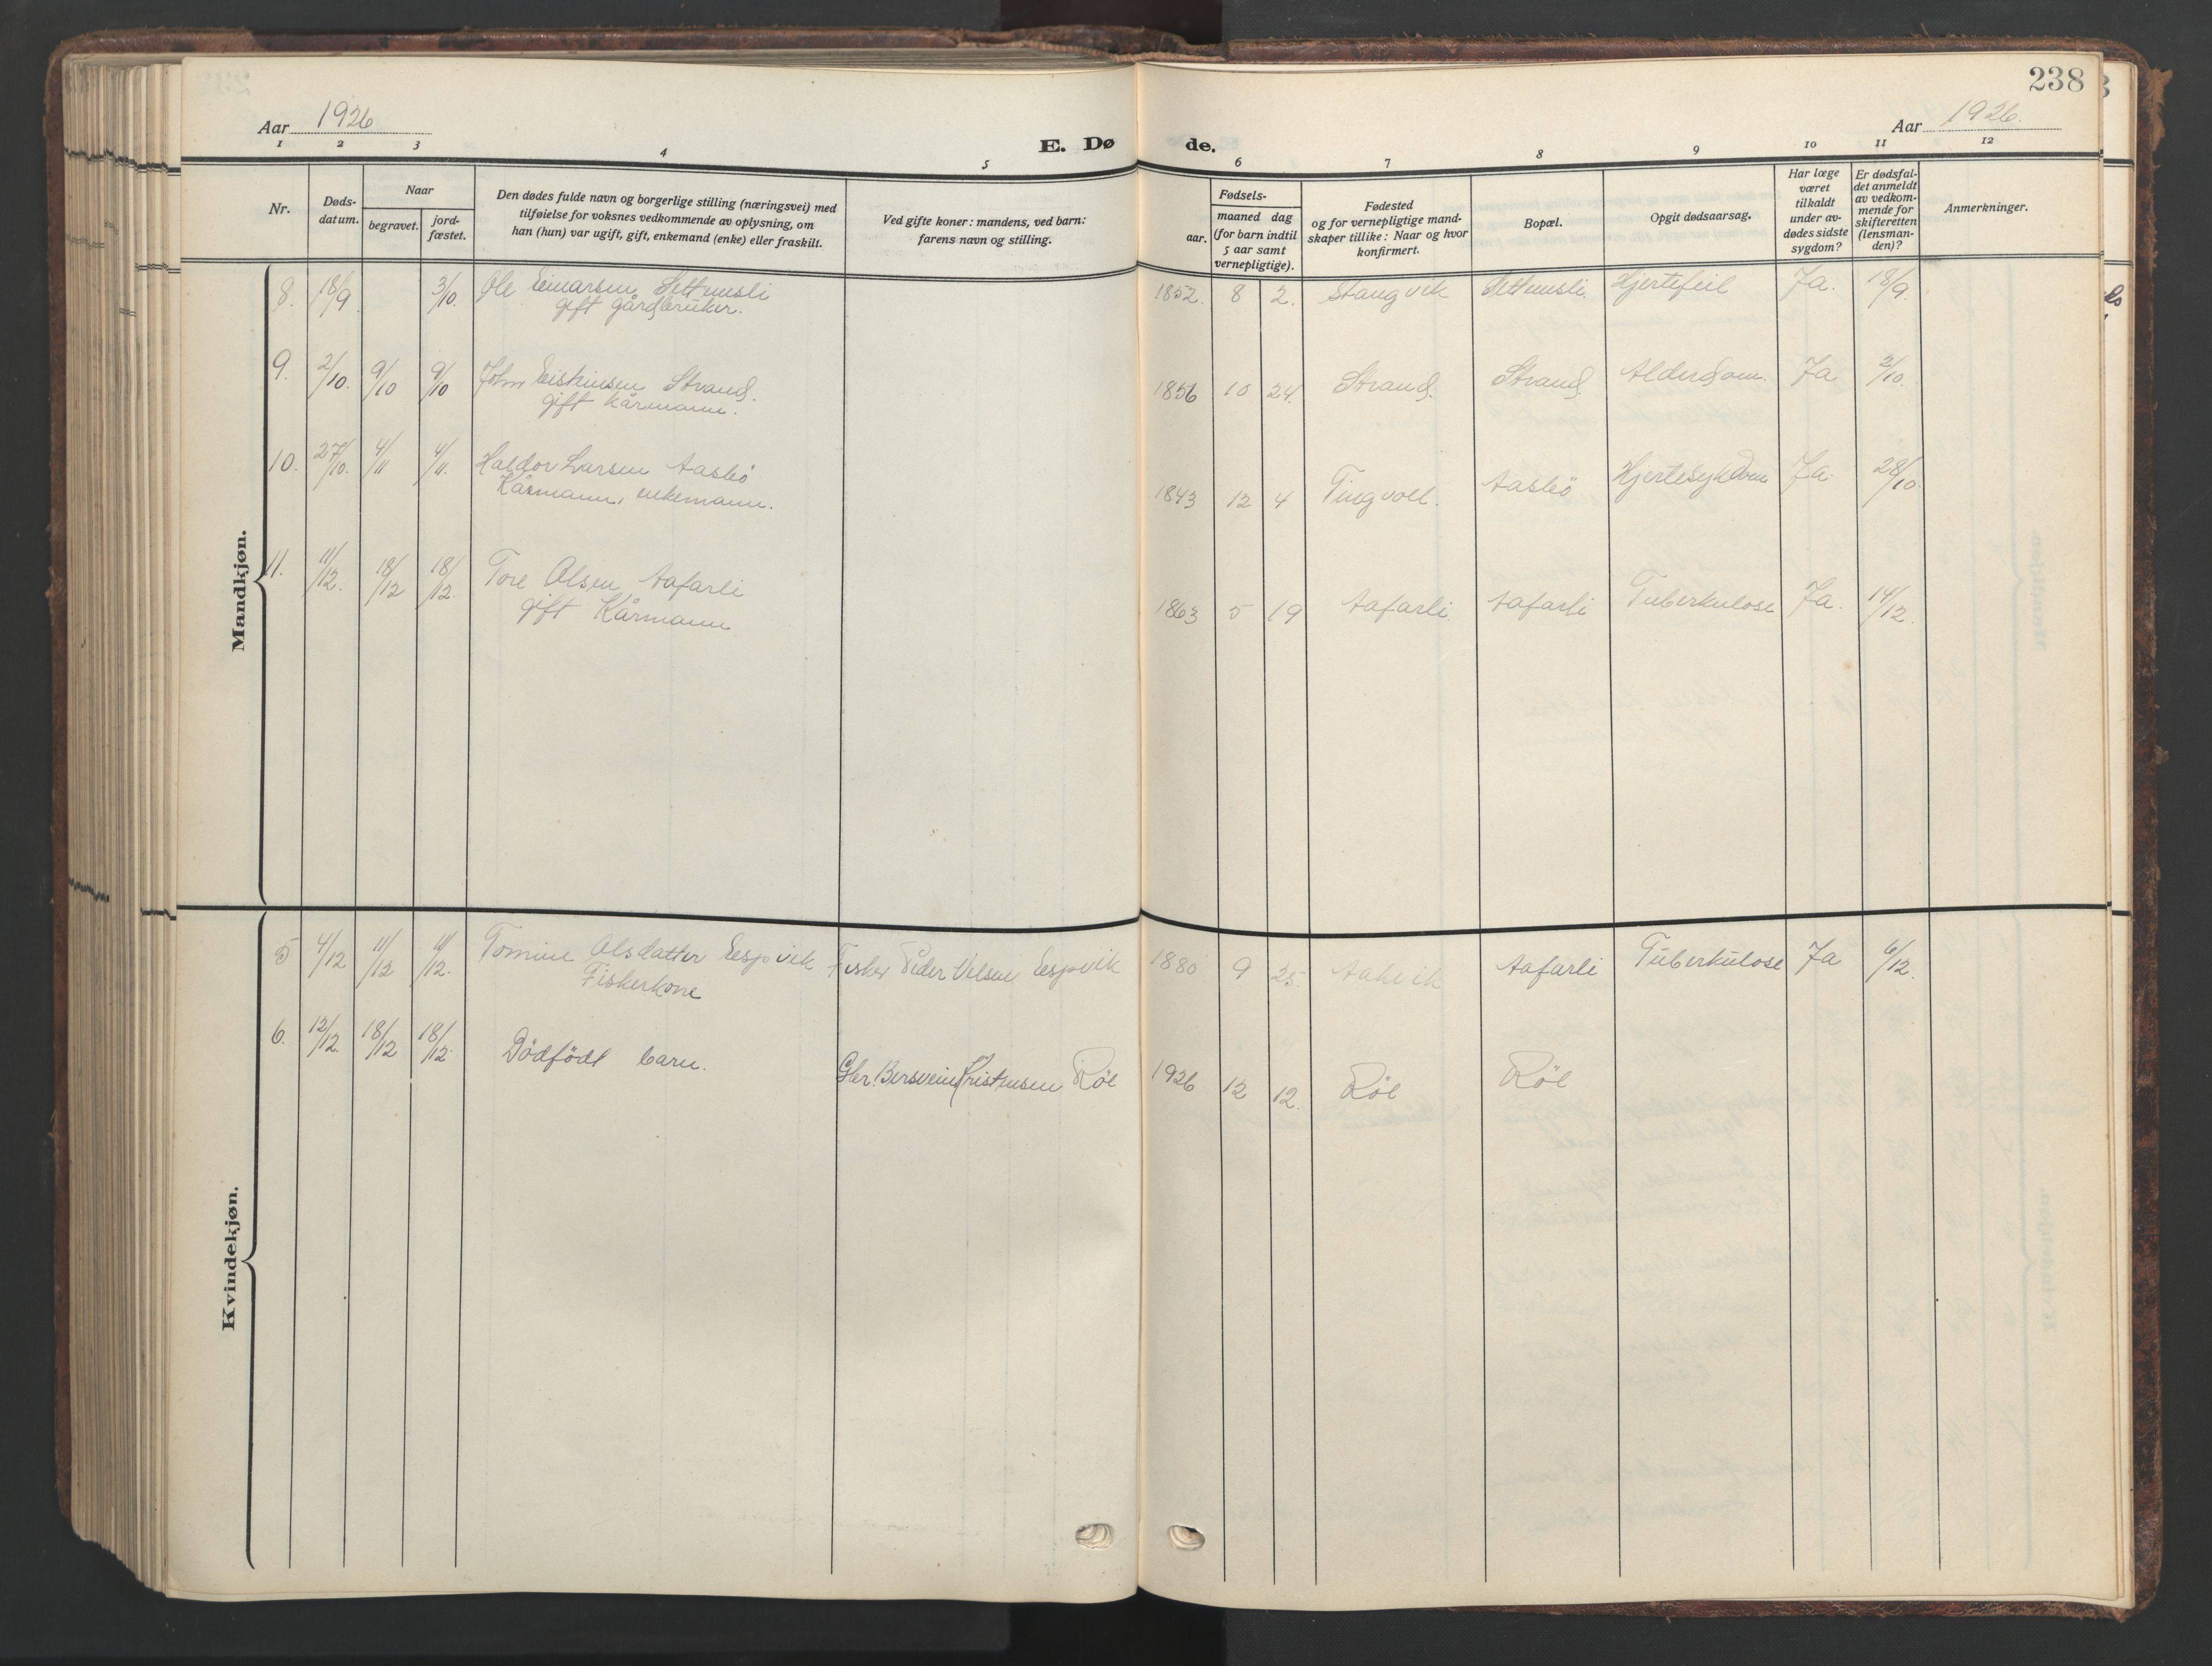 238
Aar 1926
Aar 1926.
E. Dø
de.
1 2 3 4 5 6 7 8 9 10 11 12
Nr.
Døds-
datum.
Naar
begravet.
jord-
fæstet.
Den dødes fulde navn og borgerlige stilling (næringsvei) med
tilføielse for voksnes vedkommende av oplysning, om
han (hun) var ugift, gift, enkemand (enke) eller fraskilt.
Ved gifte koner: mandens, ved barn:
farens navn og stilling.
Fødsels-
aar.
maaned dag
(for barn indtil
5 aar samt
vernepligtige).
Fødested
og for vernepligtige mand-
skaper tillike: Naar og hvor
konfirmert.
Bopæl.
Opgit dødsaarsag.
Har læge
været
tilkaldt
under av-
dødes sidste
sygdom?
Er dødsfal-
det anmeldt
av vedkom-
mende for
skifteretten
(lensman-
den)?
Anmerkninger.
Mandkjøn.
8. 18/9 3/10. Ole Einarsen Settemsli 1852. 8 2. Stangvik Settemsli. Hjertefeil Ja. 18/9.
gift gårdbruker.
9. 2/10. 9/10 9/10 John Eistensen Strand. 1856 10 24. Strand. Strand. Alderdom. Ja 2/10.
gift kårmann.
10. 27/10. 4/11 4/11. Haldor Larsen Aasbö 1843 12 4 Tingvoll. Aasbö Hjertesykdom Ja. 28/10.
Kårmann, enkemann.
11. 11/12. 18/12 18/12. Tore Olsen Aafarli 1863 5 19 Aafarli. Aafarli Tuberkulose Ja. 14/12.
gift Kårmann
Kvindekjøn.
5 4/12 11/12 11/12. Tomine Olsdatter Eespvik Fisker Peder Eespvik 1880 9 25. Aakvik Aafarli Tuberkulose Ja 6/12.
Fiskerkone
6. 12/12. 18/12 18/12. Dödfödt barn. Gbr. Bersvein Kristensen Röe 1926 12 12. Röe Röe